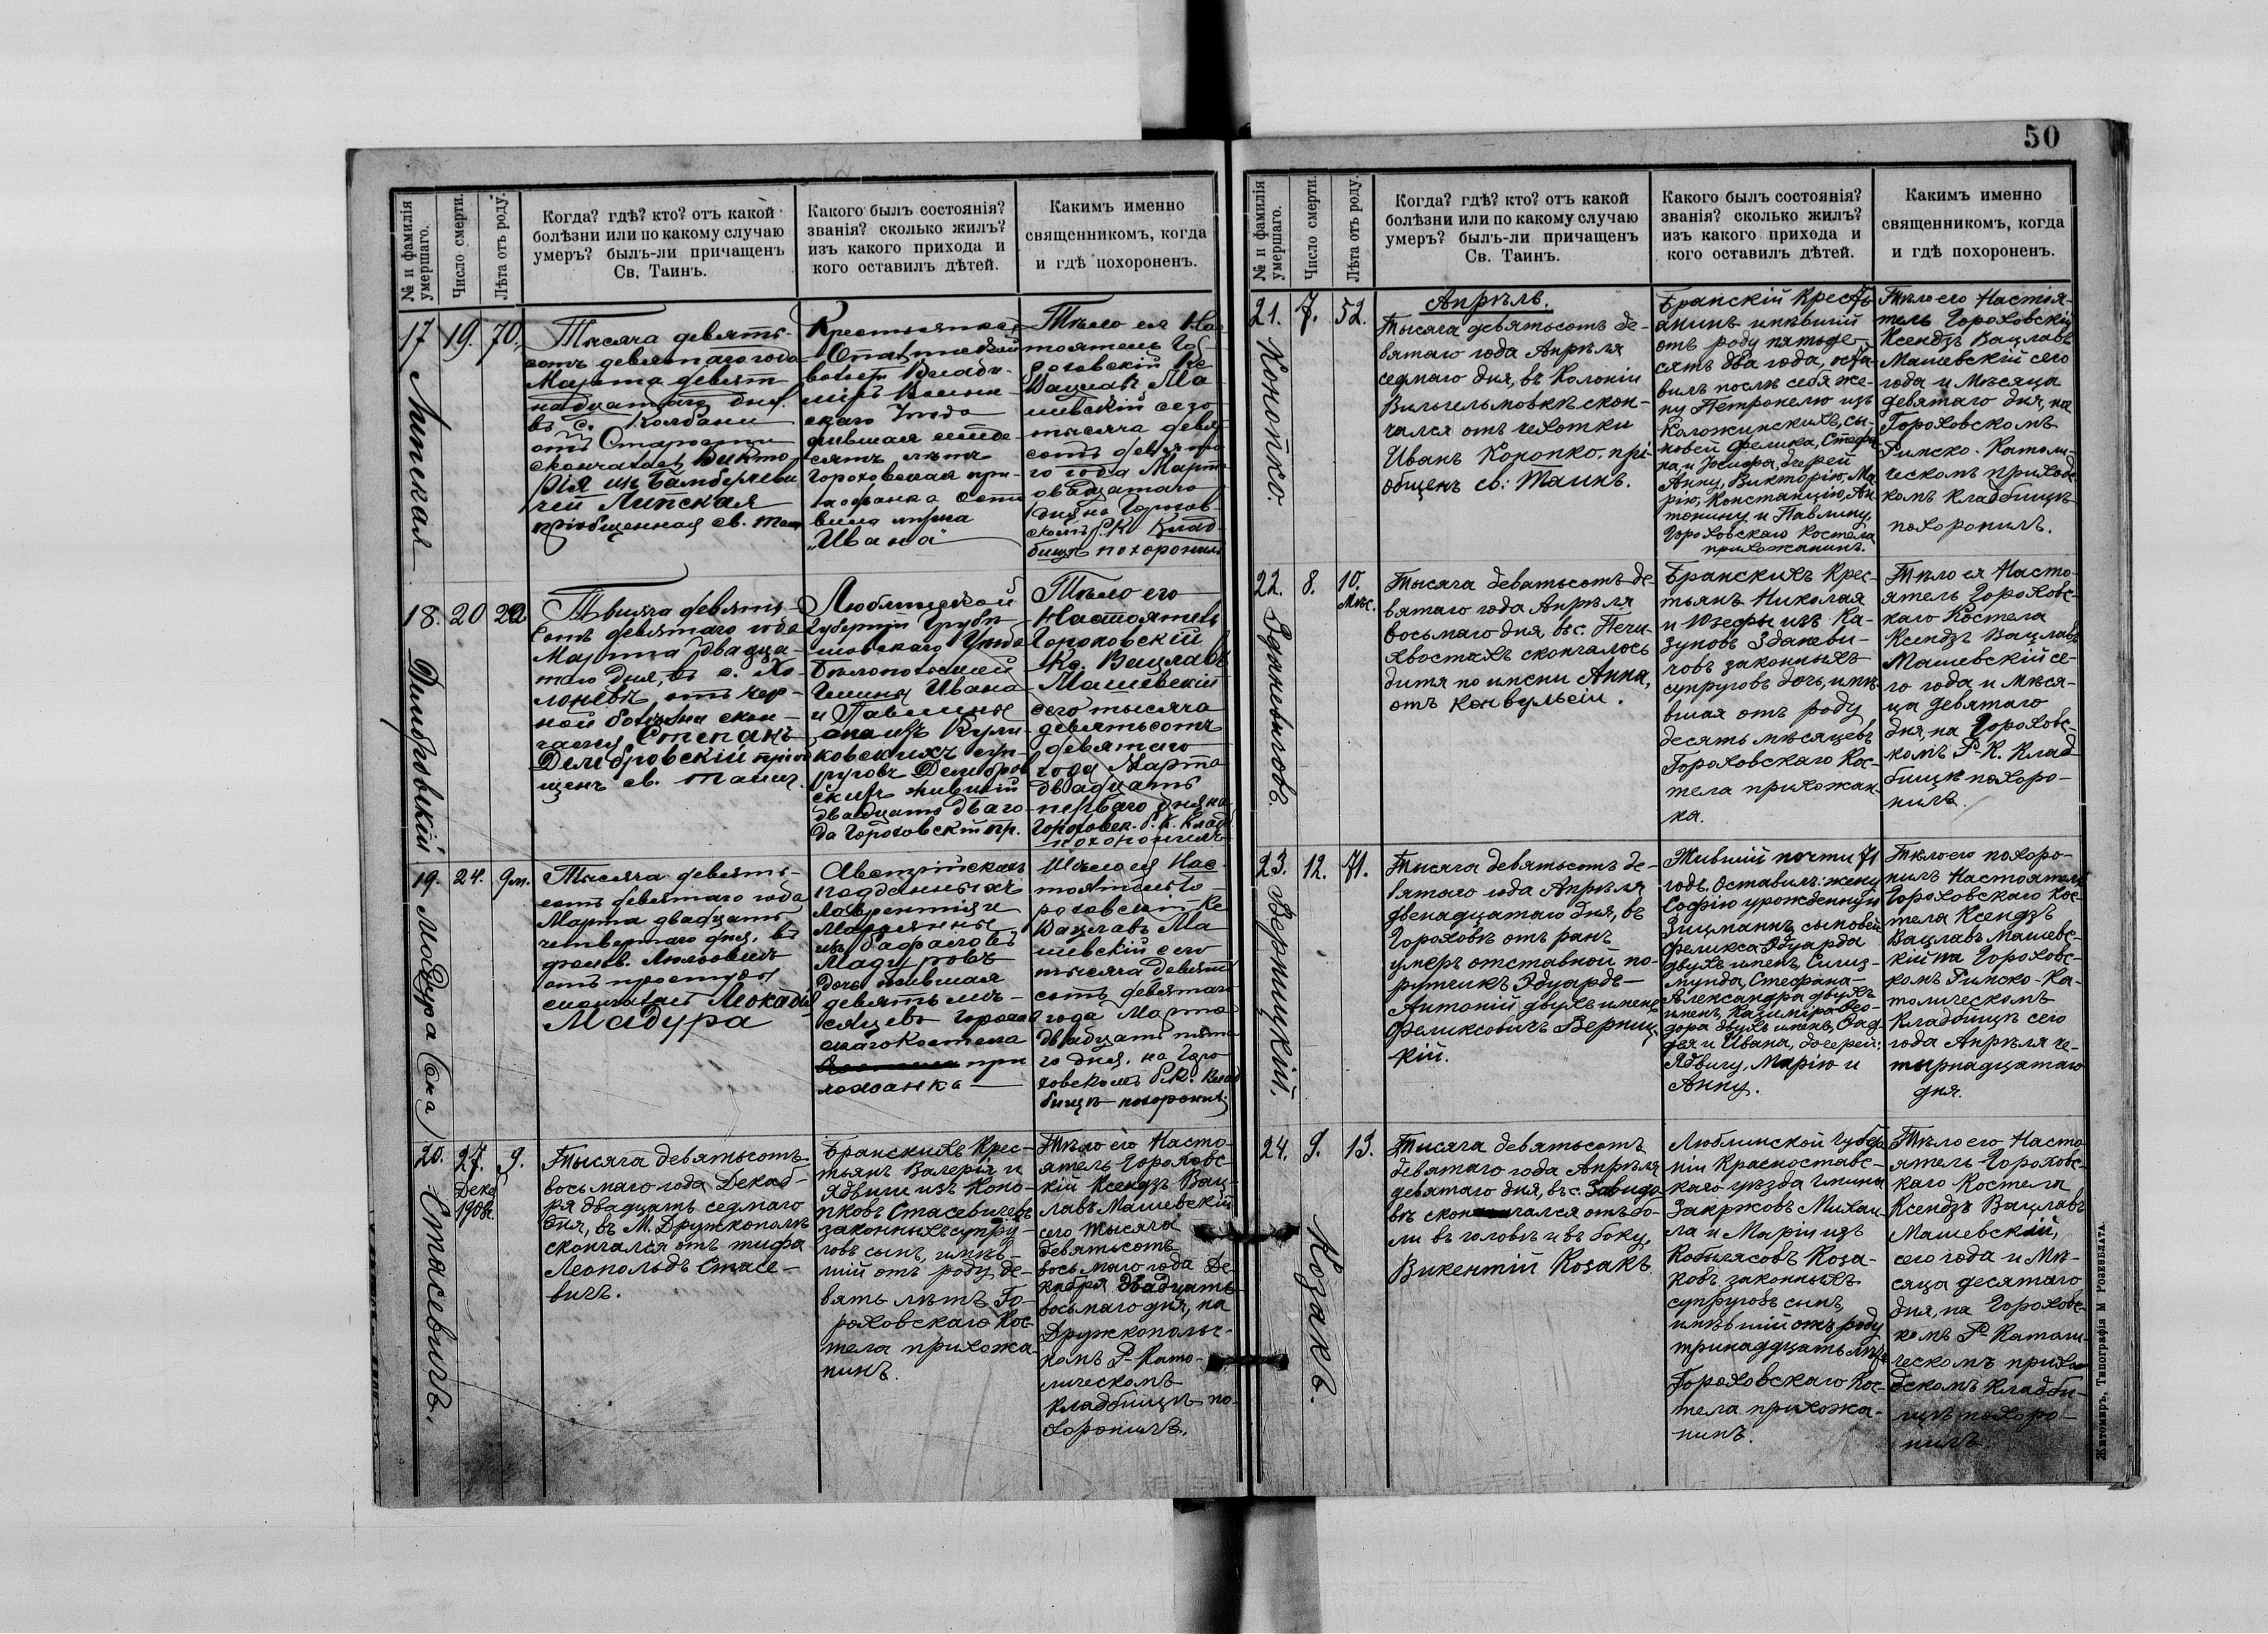 50
№ и фамилія умершаго.
Число смерти.
Лѣта отъ роду.
Когда? гдѣ? кто? отъ какой
болѣзни или по какому случаю
умеръ? былъ-ли причащенъ
Св. Таинъ.
Какого былъ состоянія?
званія? сколько жилъ?
изъ какого прихода и
кого оставилъ дѣтей.
Каким​ъ именно
священникомъ, когда
и гдѣ похороненъ.
17
Липская
19.
70.
Тысяча девять-
сотъ девятаго года
Марта девят
надцатаго дня
въ с. Колбани
отъ Старости
скончалась Викто
рія изъ
Липская
пріобщенная св. Таин
Крестьянка
волости Влади-
міръ Волын
скаго Уѣзда
жившая семде-
сятъ лѣтъ
Гороховская при-
хожанка оста
вила мужа
„Ивана"
Тѣло ея Нас
тоятель Го
роховскій Кс
Вацлавъ Ма
шевскій сего
тысяча девя
сотъ девята
го года Марта
двадцатаго
дня на Горохов-
скомъ Р.К. Клад-
бищѣ похоронилъ
18.
Дембровскій
20
22
Тысяча девять-
сотъ девятаго года
Марта двадца-
таго дня, въ с. Хо-
лоневѣ отъ
ной болѣзни скон-
чался Степанъ
Дембровскій пріоб
щенъ св. Таинъ.
Люблинской
Губерніи Грубе
шовскаго Уѣзда
Гмины Ивана
и Павлины
изъ Кули
ковскихъ суп-
руговъ Дембров
скихъ жившій
двадцать два го
да Гороховскій пр.
Тѣло его
Настоятель
Гороховскій
Кс. Вацлавъ
Машевскій
сего тысяча
девятьсотъ
девятаго
года Марта
двадцать
перваго дня на
Гороховск. Р. К. Кладб.
похоронилъ
19.
Мадура
24.
9 м.
Тысяча девять-
сотъ девятаго года
Марта двадцать
четвертаго дня, въ
отъ простуды
скончалась Леокадія
Мадура
Австрійскихъ
подданныхъ
Лаврентія и
Маріянны
изъ
Мадуровъ
дочь жившая
девять мѣ-
сяцевъ Горохов
скаго Костела
при
хожанка
Тѣло ея Нас-
тоятель Го
роховскій Кс
Вацлавъ Ма
шевскій сего
тысяча девят
сотъ девятаго
года Марта
двадцать пята
го дня, на Горо
ховскомъ Р.К. клад
бищѣ похоронилъ.
20.
Стасевичъ.
27.
Дека
1908г.
9.
Тысяча девятьсотъ
восьмаго года Декаб-
ря двадцать седмаго
дня, въ М. Дружкополѣ
скончался отъ тифа
Леопольдъ Стасе-
вичъ.
Бранскихъ Крес-
тьянъ Валерія и
Ядвиги изъ Коно-
пковъ Стасевичевъ
законныхъ супру-
говъ сынъ, имѣв-
шій отъ роду де-
вять лѣтъ Го-
роховскаго Кос-
тела прихожа-
нинъ.
Тѣло его Насто-
ятель Гороховс-
кій Ксендзъ Вац-
лавъ Машевскій
сего Тысяча
девятьсотъ
восьмаго года Де
кабря двадцать
восьмаго дня, на
Дружкопольс-
комъ Р-Като-
лическомъ
кладбищѣ по-
хоронилъ.
№ и фамилія умершаго.
Число смерти.
Лѣта отъ роду.
Когда? гдѣ? кто? отъ какой
болѣзни или по какому случаю
умеръ? былъ-ли причащенъ
Св. Таинъ.
Какого былъ состоянія?
званія? сколько жилъ?
изъ какого прихода и
кого оставилъ дѣтей.
Какимъ именно
священникомъ, когда
и гдѣ похороненъ.
21.
Конопко.
7.
52.
Апрѣль.
Тысяча девятьсотъ де-
вятаго года Апрѣля
седмаго дня, въ Колоніи
Вильгельмовкѣ скон-
чался отъ чехотки
Иванъ Конопко. прі-
общенъ св: Таинъ.
Бранскій Крест
анинъ имѣвшій
отъ роду пятьде-
сятъ два года, оста-
вилъ послѣ себя же-
ну Петронелю изъ
Коложинскихъ, сы-
новей Феликса, Стефа
на, и Іосифа, дчерей
Анну, Викторію, Ма
рію, Констанцію, Ан
тонину и Павлину,
Гороховскаго Костела
прихожанинъ.
Тѣло его Настоя-
тель Гороховскій
Ксендзъ Вацлавъ
Машевскій сего
года и Мѣсяца
девятаго дня, на
Гороховскомъ
Римско-Католи-
ческомъ приходс
комъ кладбищѣ
похоронилъ.
22.
Здановичовъ.
8.
10.
Мѣс.
Тысяча деватьсотъ де-
вятаго года Апрѣля
восьмаго дня, въ с. Печи-
хвостахъ скончалось
дитя по имени Анна,
отъ конвульсіи.
Бранскихъ Крес-
тьянъ Николая
и Юзефы изъ Ка-
зуновъ Здакеви-
човъ законныхъ
супруговъ дочь, имѣ-
вшая отъ роду
десять мѣсяцевъ,
Гороховскаго Кос-
тела прихожан-
ка.
Тѣло ея Насто-
ятель Гороховс-
каго Костела
Ксендзъ Вацлавъ
Машевскій се-
го года и Мѣся-
ца девятаго
дня, на Гороховс-
комъ Р-К. Клад
бищѣ похоро-
нилъ.
23.
Верницкій.
12.
71.
Тысяча девятьсотъ де-
вятаго года Апрѣля
двенадцатаго дня, въ
Гороховѣ отъ ранъ
умеръ отставной по-
ручикъ Эдуардъ-
Антоній двухъ именъ
Феликсовичъ Верниц-
кій.
Жившій почти 71
годъ. Оставилъ: жену
Софію урожденную
Зицманнъ, сыновей
Феликса-Эдуарда
двухъ именъ, Сигиз-
мунда, Стефана-
Александра двухъ
именъ, Казиміра-Фео-
дора двухъ именъ, Фад-
дея и Ивана, дочерей:
Ядвигу, Марію и
Анну.
Тѣло его похоро-
нилъ Настоятель
Гороховскаго Кос-
тела Ксендзъ
Вацлавъ Машевс-
кій на Гороховс-
комъ Римско-Ка-
толическомъ
Кладбищѣ сего
года Апрѣля че-
тырнадцатаго
дня.
24.
Козакъ.
9.
13.
Тысяча девятьсотъ
девятаго года Апрѣля
девятаго дня, въ с. Завидо-
вѣ скончался отъ бо-
ли въ головѣ и въ боку,
Викентій Козакъ.
Люблинской Губер
ніи Красноставс-
каго уѣзда Гмины
Закржовъ Михаи-
ла и Маріи изъ
Кобылясовъ Коза-
ковъ законныхъ
супруговъ сынъ,
имѣвшій отъ роду
тринадцать лѣтъ
Гороховскаго Кос-
тела прихожа-
нинъ.
Тѣло его Насто
ятель Гороховс-
каго Костела
Ксендзъ Вацлавъ
Машевскій,
сего года и Мѣ-
сяца десятаго
дня, на Гороховс-
комъ Р-Католи-
ческомъ прихо
дскомъ кладби-
щѣ похоро-
нилъ.
Житомиръ, Типографія М РОЗЕНБЛАТА